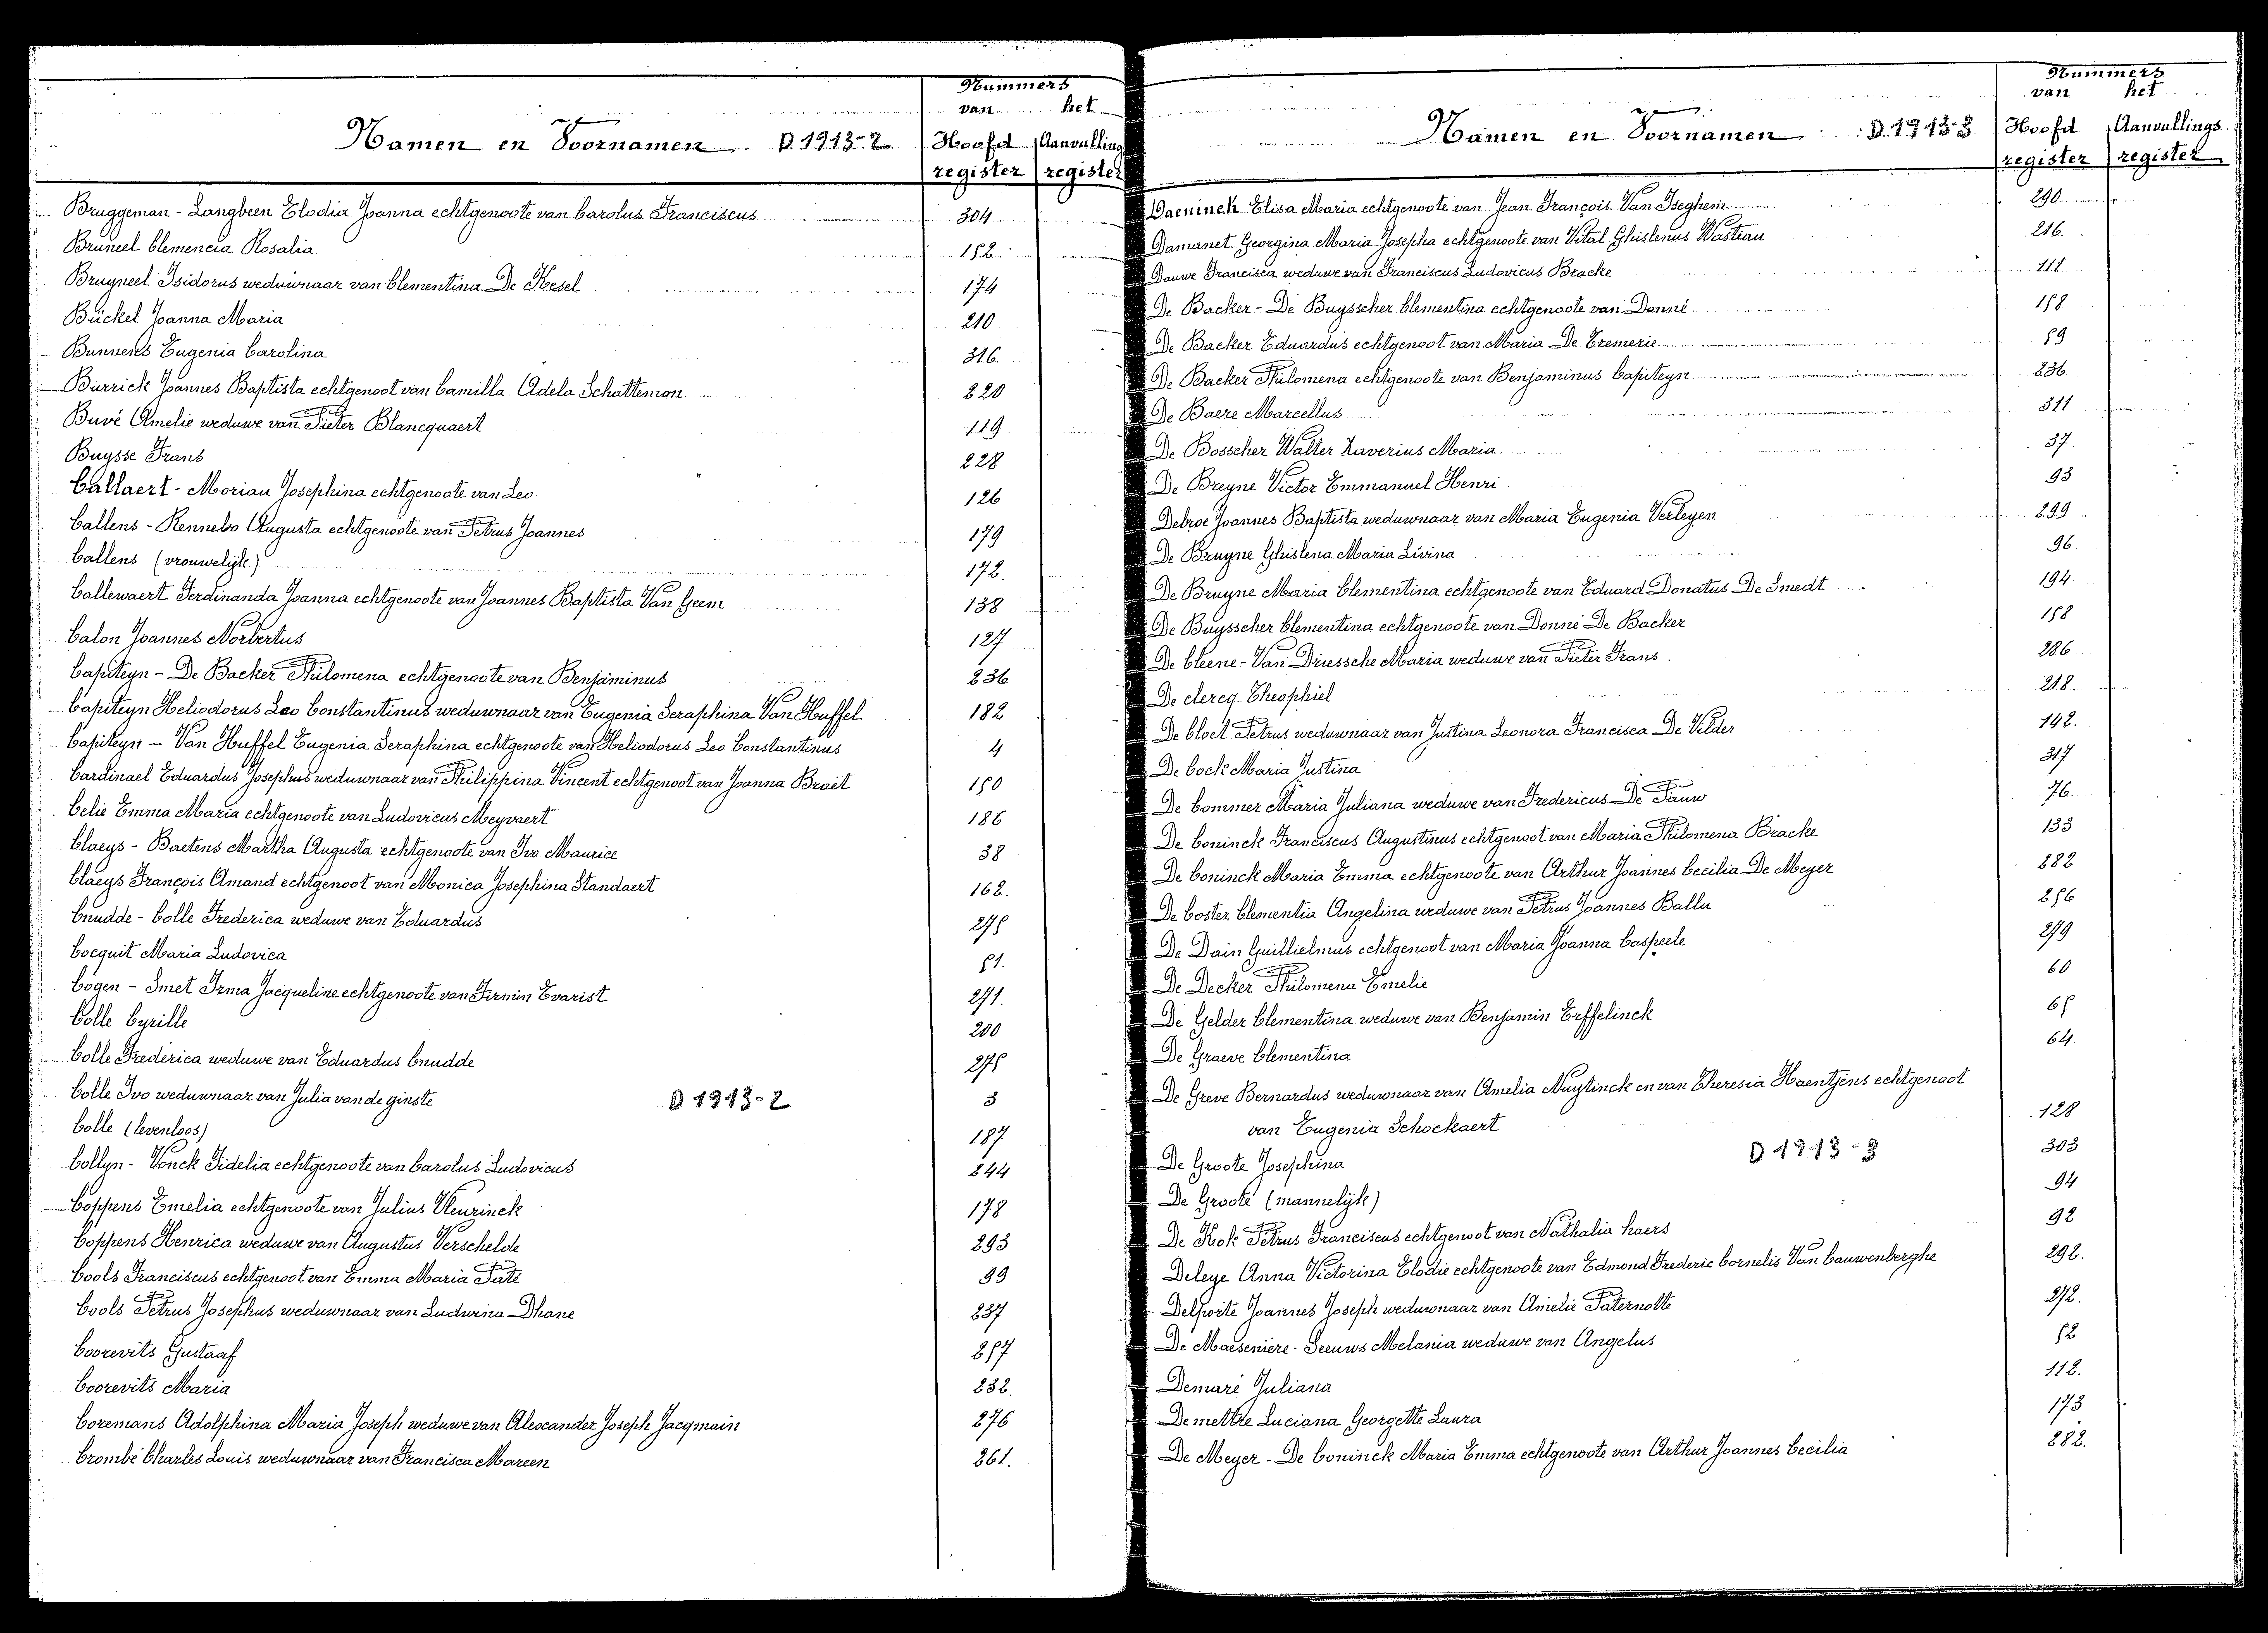 Nummers
van het
Namen en Voornamen D 1913-2 Hoofd Aanvulling
register register
Bruggeman - Langbeen Elodia Joanna echtgenoote van Carolus Franciscus 304
Bruneel Clemencia Rosalia 152
Bruyneel Isidorus weduwnaar van Clementina De Kesel 174
Bückel Joanna Maria 210
Bunnens Eugenia Carolina 316.
Burrick Joannes Baptista echtgenoot van Camilla Adela Schatteman 220
Buvé Amelie weduwe van Pieter Blancquaert 119
Buysse Frans 228
Callaert - Moriau Josephina echtgenoote van Leo 126
Callens - Rennebo Augusta echtgenoote van Petrus Joannes 179
Callens (vrouwelijk) 172.
Callewaert Ferdinanda Joanna echtgenoote van Joannes Baptista Van Geem 138
Calon Joannes Norbertus 127
Capiteyn - De Backer Philomena echtgenoote van Benjaminus 236
Capiteyn Heliodorus Leo Constantinus weduwnaar van Eugenia Seraphina Van Huffel 182
Capiteyn - Van Huffel Eugenia Seraphina echtgenoote van Heliodorus Leo Constantinus 4
Cardinael Eduardus Josephus weduwnaar van Philippina Vincent echtgenoot van Joanna Brait 150
Celie Emma Maria echtgenoote van Ludovicus Meyvaert 186
Claeys - Baetens Martha Augusta echtgenoote van Ivo Maurice 38
Claeys François Amand echtgenoot van Monica Josephina Standaert 162.
Cnudde - Colle Frederica weduwe van Eduardus 275
Cocquit Maria Ludovica 51.
Cogen - Smet Irma Jacqueline echtgenoote van Firmin Evarist 271.
Colle Cyrille 200
Colle Frederica weduwe van Eduardus Cnudde 275
Colle Ivo weduwnaar van Julia vande ginste D 1913-2 3
Colle (levenloos) 187
Collyn - Vonck Fidelia echtgenoote van Carolus Ludovicus 244
Coppens Emelia echtgenoote van Julius Vleurinck 178
Coppens Henrica weduwe van Augustus Verschelde 293
Cools Franciscus echtgenoot van Emma Maria Paté 99
Cools Petrus Josephus weduwnaar van Ludwina Dhane 237
Coorevits Gustaaf 257
Coorevits Maria 232.
Coremans Adolphina Maria Joseph weduwe van Alexander Joseph Jacqmain 276
Crombé Charles Louis weduwnaar van Francisca Mareen 261.
Nummers
van het
Namen en Voornamen D 1913-3 Hoofd Aanvullings
register register
Daeninck Elisa Maria echtgenoote van Jean François Van Iseghem 290
Damanet Georgina Maria Josepha echtgenoote van Vital Ghislenus Wastiau 216
Dauwe Francisca weduwe van Franciscus Ludovicus Bracke 111
De Backer - De Buysscher Clementina echtgenoote van Donné 158
De Backer Eduardus echtgenoot van Maria De Cremerie 59
De Backer Philomena echtgenoote van Benjaminus Capiteyn 236
De Baere Marcellus 311
De Bosscher Walter Xaverius Maria 37
De Breyne Victor Emmanuel Henri 93
Debroe Joannes Baptista weduwnaar van Maria Eugenia Verleyen 299
De Bruyne Ghislena Maria Livina 96
De Bruyne Maria Clementina echtgenoote van Eduard Donatus De Smedt 194
De Buysscher Clementina echtgenoote van Donné De Backer 158
De Cleene - Van Driessche Maria weduwe van Pieter Frans 286
De clercq Theophiel 218.
De Cloet Petrus weduwnaar van Justina Leonora Francisca De Vilder 142.
De Cock Maria Justina 317
De Commer Maria Juliana weduwe van Fredericus De Pauw 76
De Coninck Franciscus Augustinus echtgenoot van Maria Philomena Bracke 133
De Coninck Maria Emma echtgenoote van Arthur Joannes Cecilia De Meyer 282
De Coster Clementia Angelina weduwe van Petrus Joannes Ballu 256
De Dain Guillielmus echtgenoot van Maria Joanna Caspeele 279
De Decker Philomena Emelie 60
De Gelder Clementina weduwe van Benjamin Erffelinck 65
De Graeve Clementina 64.
De Greve Bernardus weduwnaar van Amelia Nuytinck en van Theresia Haentjens echtgenoot
van Eugenia Schockaert 128
De Groote Josephina D 1913-3 303
De Groote (mannelijk) 94
De Kok Petrus Franciscus echtgenoot van Nathalia haers 92
Deleye Anna Victorina Elodie echtgenoote van Edmond Frederic Cornelis Van Cauwenberghe 292.
Delporte Joannes Joseph weduwnaar van Amelie Paternotte 272.
De Maesenière - Seeuws Melania weduwe van Angelus 52
Demaré Juliana 112.
Demettre Luciana Georgette Laura 173
De Meyer - De Coninck Maria Emma echtgenoote van Arthur Joannes Cecilia 282.